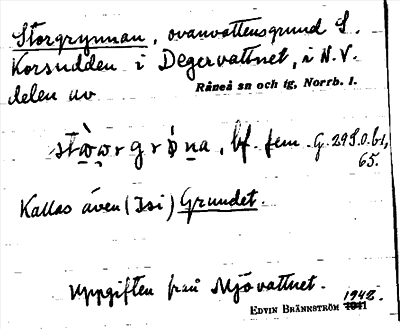 Storgrynnan, ovanvattensgrund S.
Korsudden i Degervattnet, i N.V.
delen av
Råneå sn och tg, Norrb. l.
bf. fem. G. 29 S.O. b1,
65.
Kallas även (Isi) Grundet.
Uppgiften från Mjövattnet.
1942.
EDVIN BRÄNNSTRÖM 1941